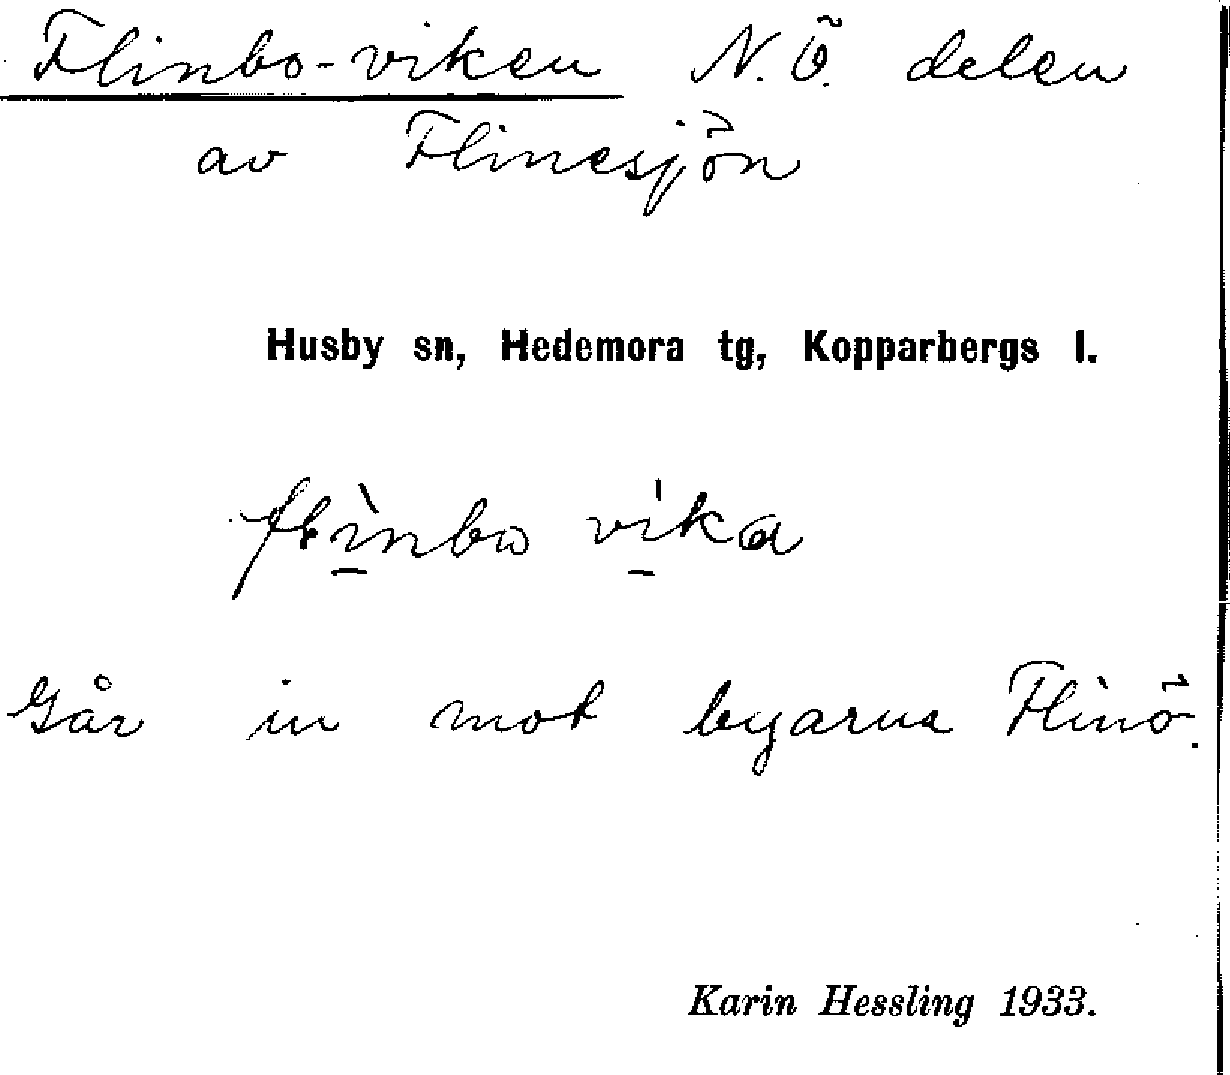 Flinbo-viken N.Ö. delen
av Flinesjön
Husby sn, Hedemora tg, Kopparbergs l.
flìnbo vika
Går in mot byarna Flinö.
Karin Hessling 1933.